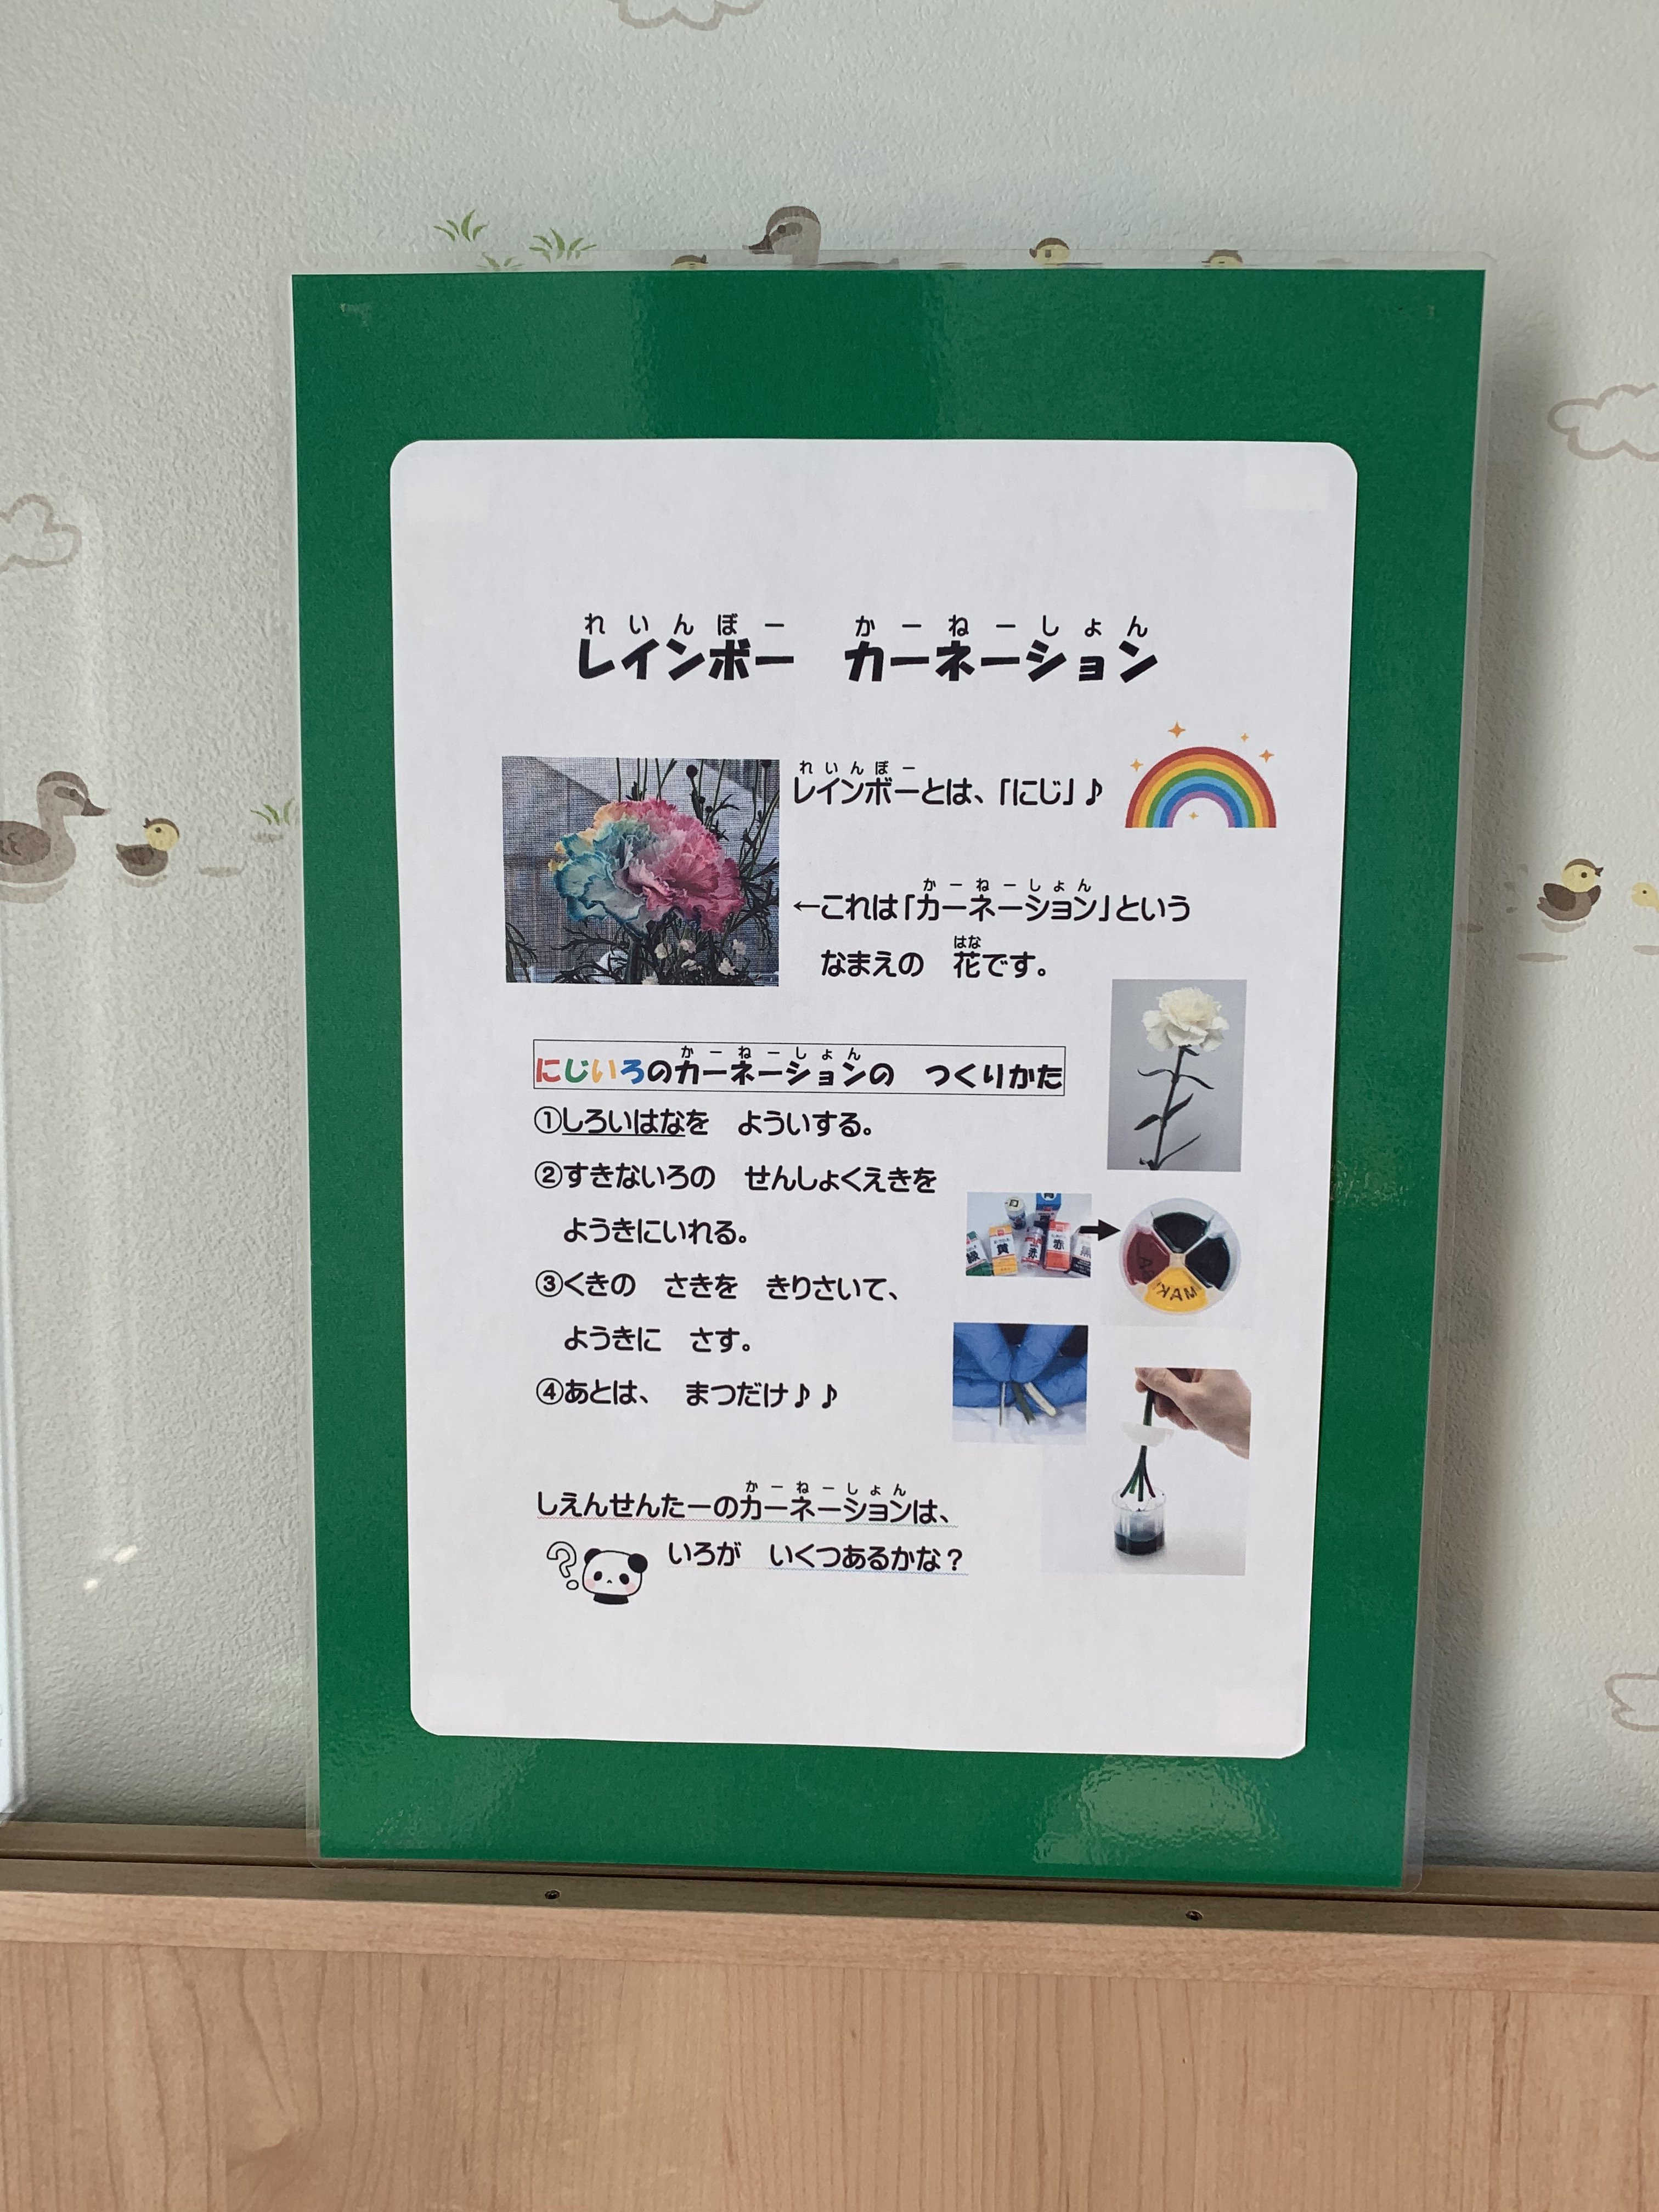 れいんぼー かーねーしょん
レインボー カーネーション
れいんぼー
レインボーとは、「にじ」♪
かーねーしょん
←これは「カーネーション」という
はな
なまえの 花です。
かーねーしょん
にじいろのカーネーションの つくりかた
①しろいはなを よういする。
②すきないろの せんしょくえきを
ようきにいれる。
緑 黄 赤 赤 黒
③くきの さきを きりさいて、
ようきに さす。
④あとは、 まつだけ♪♪
かーねーしょん
しえんせんたーのカーネーションは、
? いろが いくつあるかな?